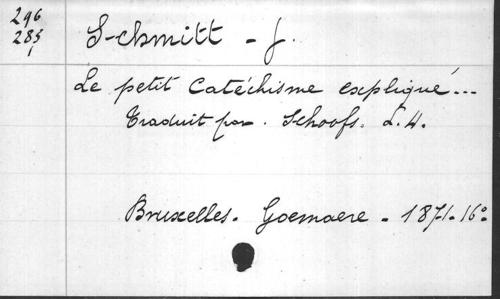 296
285
1
Schmitt - J.
Le petit Catéchisme expliqué...
Traduit par. Schoofs. L. H.
Bruxelles. Goemaere - 1871. 16°